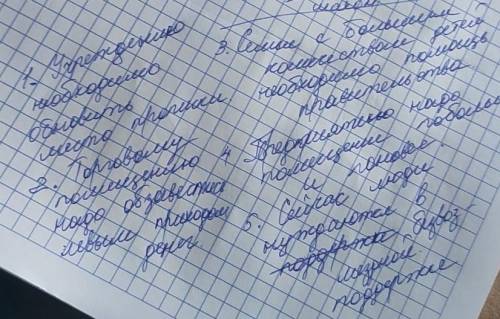 1. Учреждению
необходимо
обновить
места прописки
2. Торговому
помещению
надо обзавестись
левым приходом
денег.
3. Семьи с большим
количеством детей
необходима помощь
правительства
4. Предприятию надо
помещение побольше
и поновее.
5. Сейчас люди
нуждаются в
поддержке безвоз-
мездной
поддержке